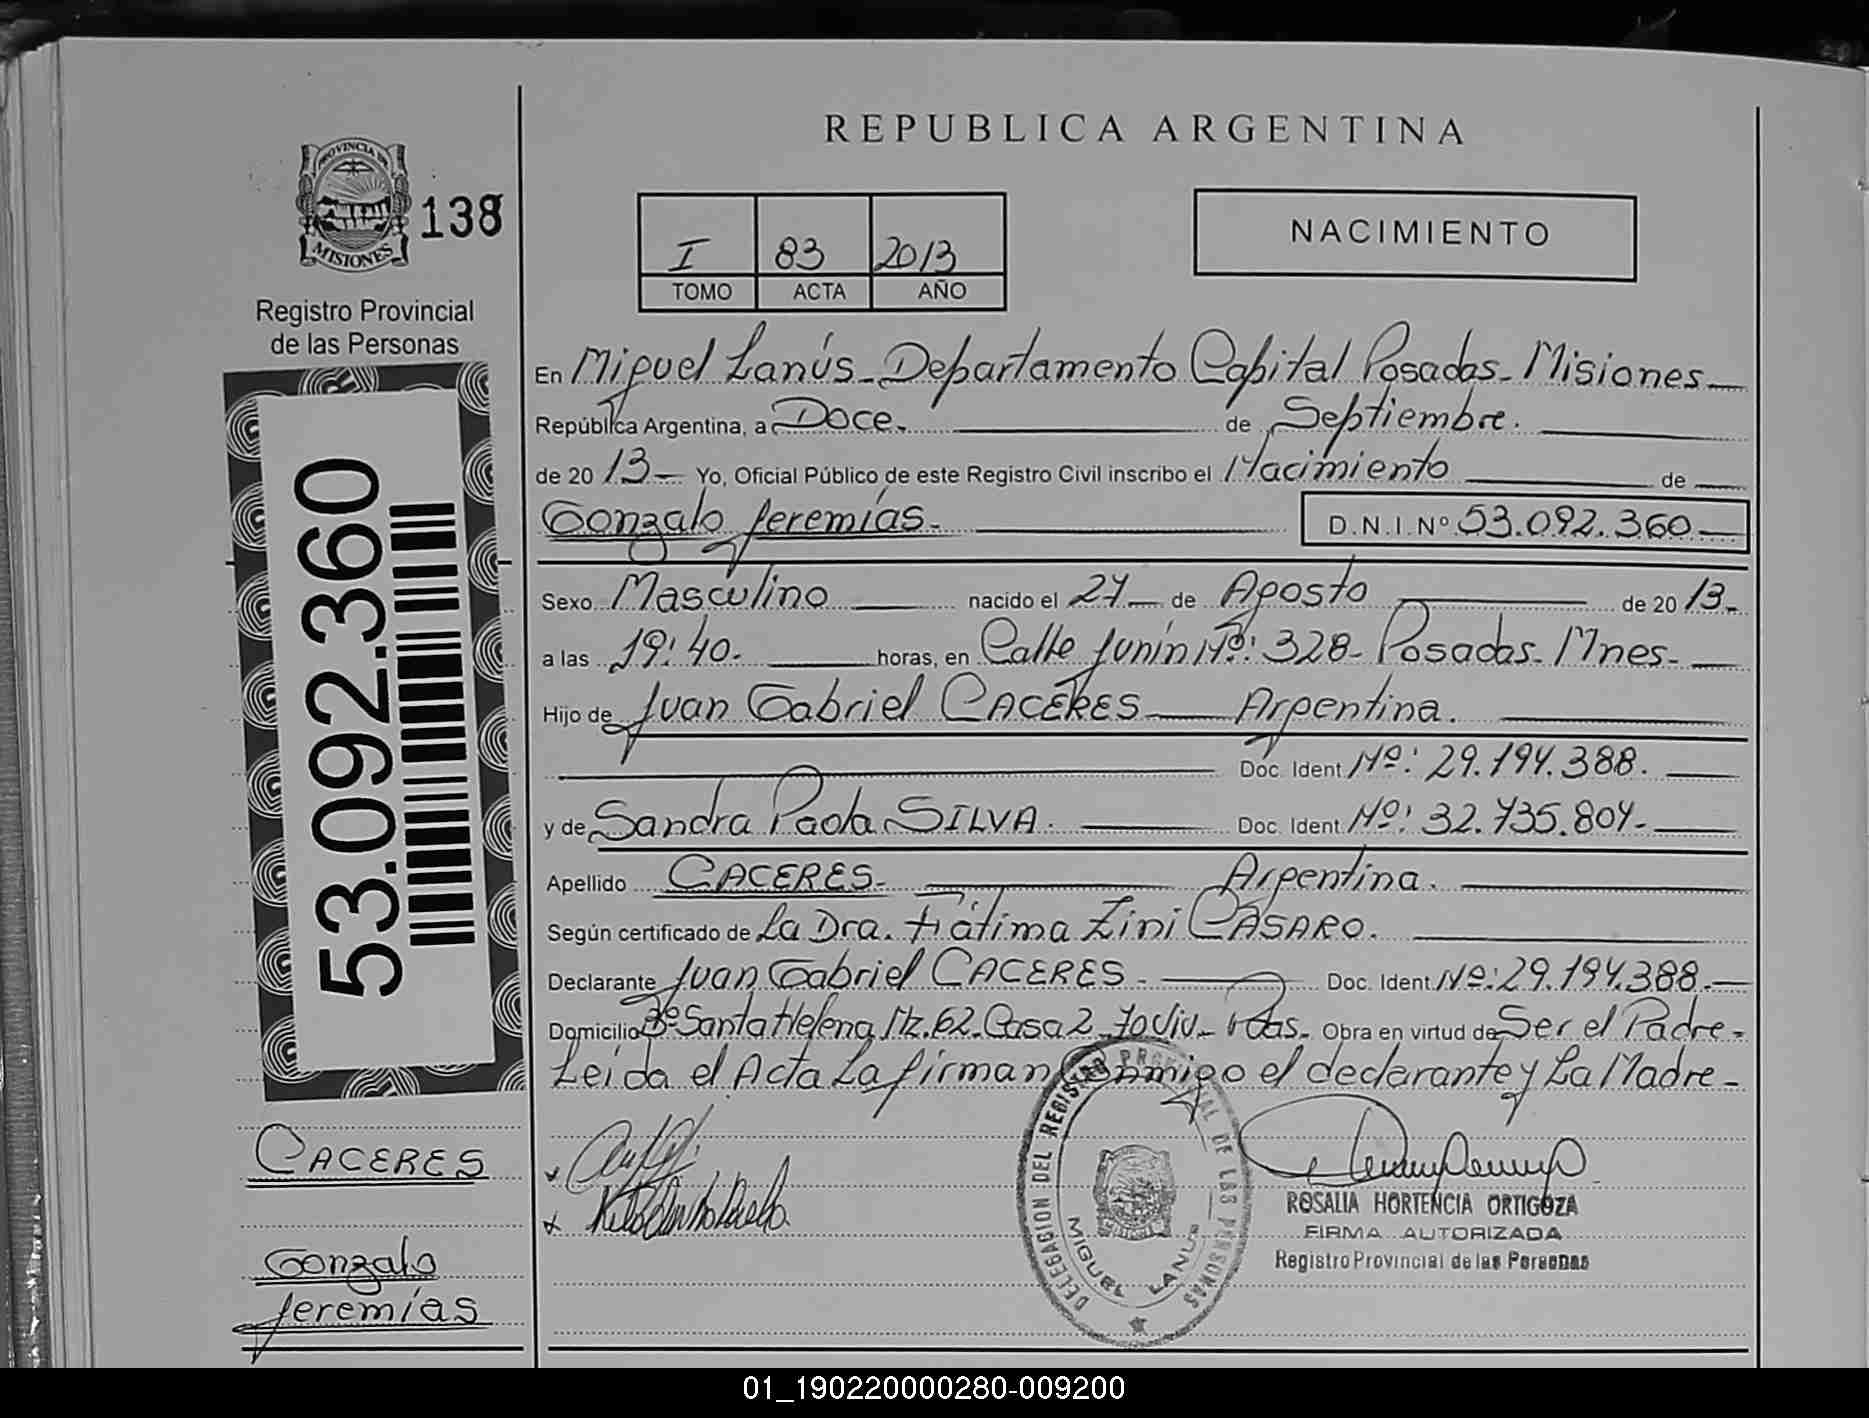 REPUBLICA ARGENTINA
PROVINCIA DE
MISIONES
138
Registro Provincial
de las Personas
I 83 2013
TOMO ACTA AÑO
NACIMIENTO
En Miguel Lanús - Departamento Capital Posadas - Misiones
República Argentina, a Doce. de Septiembre.
de 20 13 - Yo, Oficial Público de este Registro Civil inscribo el Nacimiento de
Gonzalo Jeremías - D.N.I.Nº 53.092.360
Sexo Masculino nacido el 27 de Agosto de 20 13 -
a las 19:40 - horas, en Calle Junín Nº: 328 - Posadas - Mnes -
Hijo de Juan Gabriel CACERES Argentina.
Doc. Ident. Nº: 29.194.388.
y de Sandra Paola SILVA. Doc. Ident. Nº: 32.735.807 -
Apellido CACERES - Argentina.
Según certificado de La Dra. Fátima Zini CÁSARO.
Declarante Juan Gabriel CACERES - Doc. Ident. Nº: 29.194.388 -
Domicilio Bº Santa Helena Mz. 62 - Casa 2 - 70 Viv - Pdas - Obra en virtud de Ser el Padre -
Leída el Acta La firman Conmigo el declarante y La Madre -
53.092.360
CACERES
Gonzalo
Jeremías
DELEGACION DEL REGISTRO PROVINCIAL DE LAS PERSONAS
MIGUEL LANUS
ROSALIA HORTENCIA ORTIGOZA
FIRMA AUTORIZADA
Registro Provincial de las Personas
01_190220000280-009200